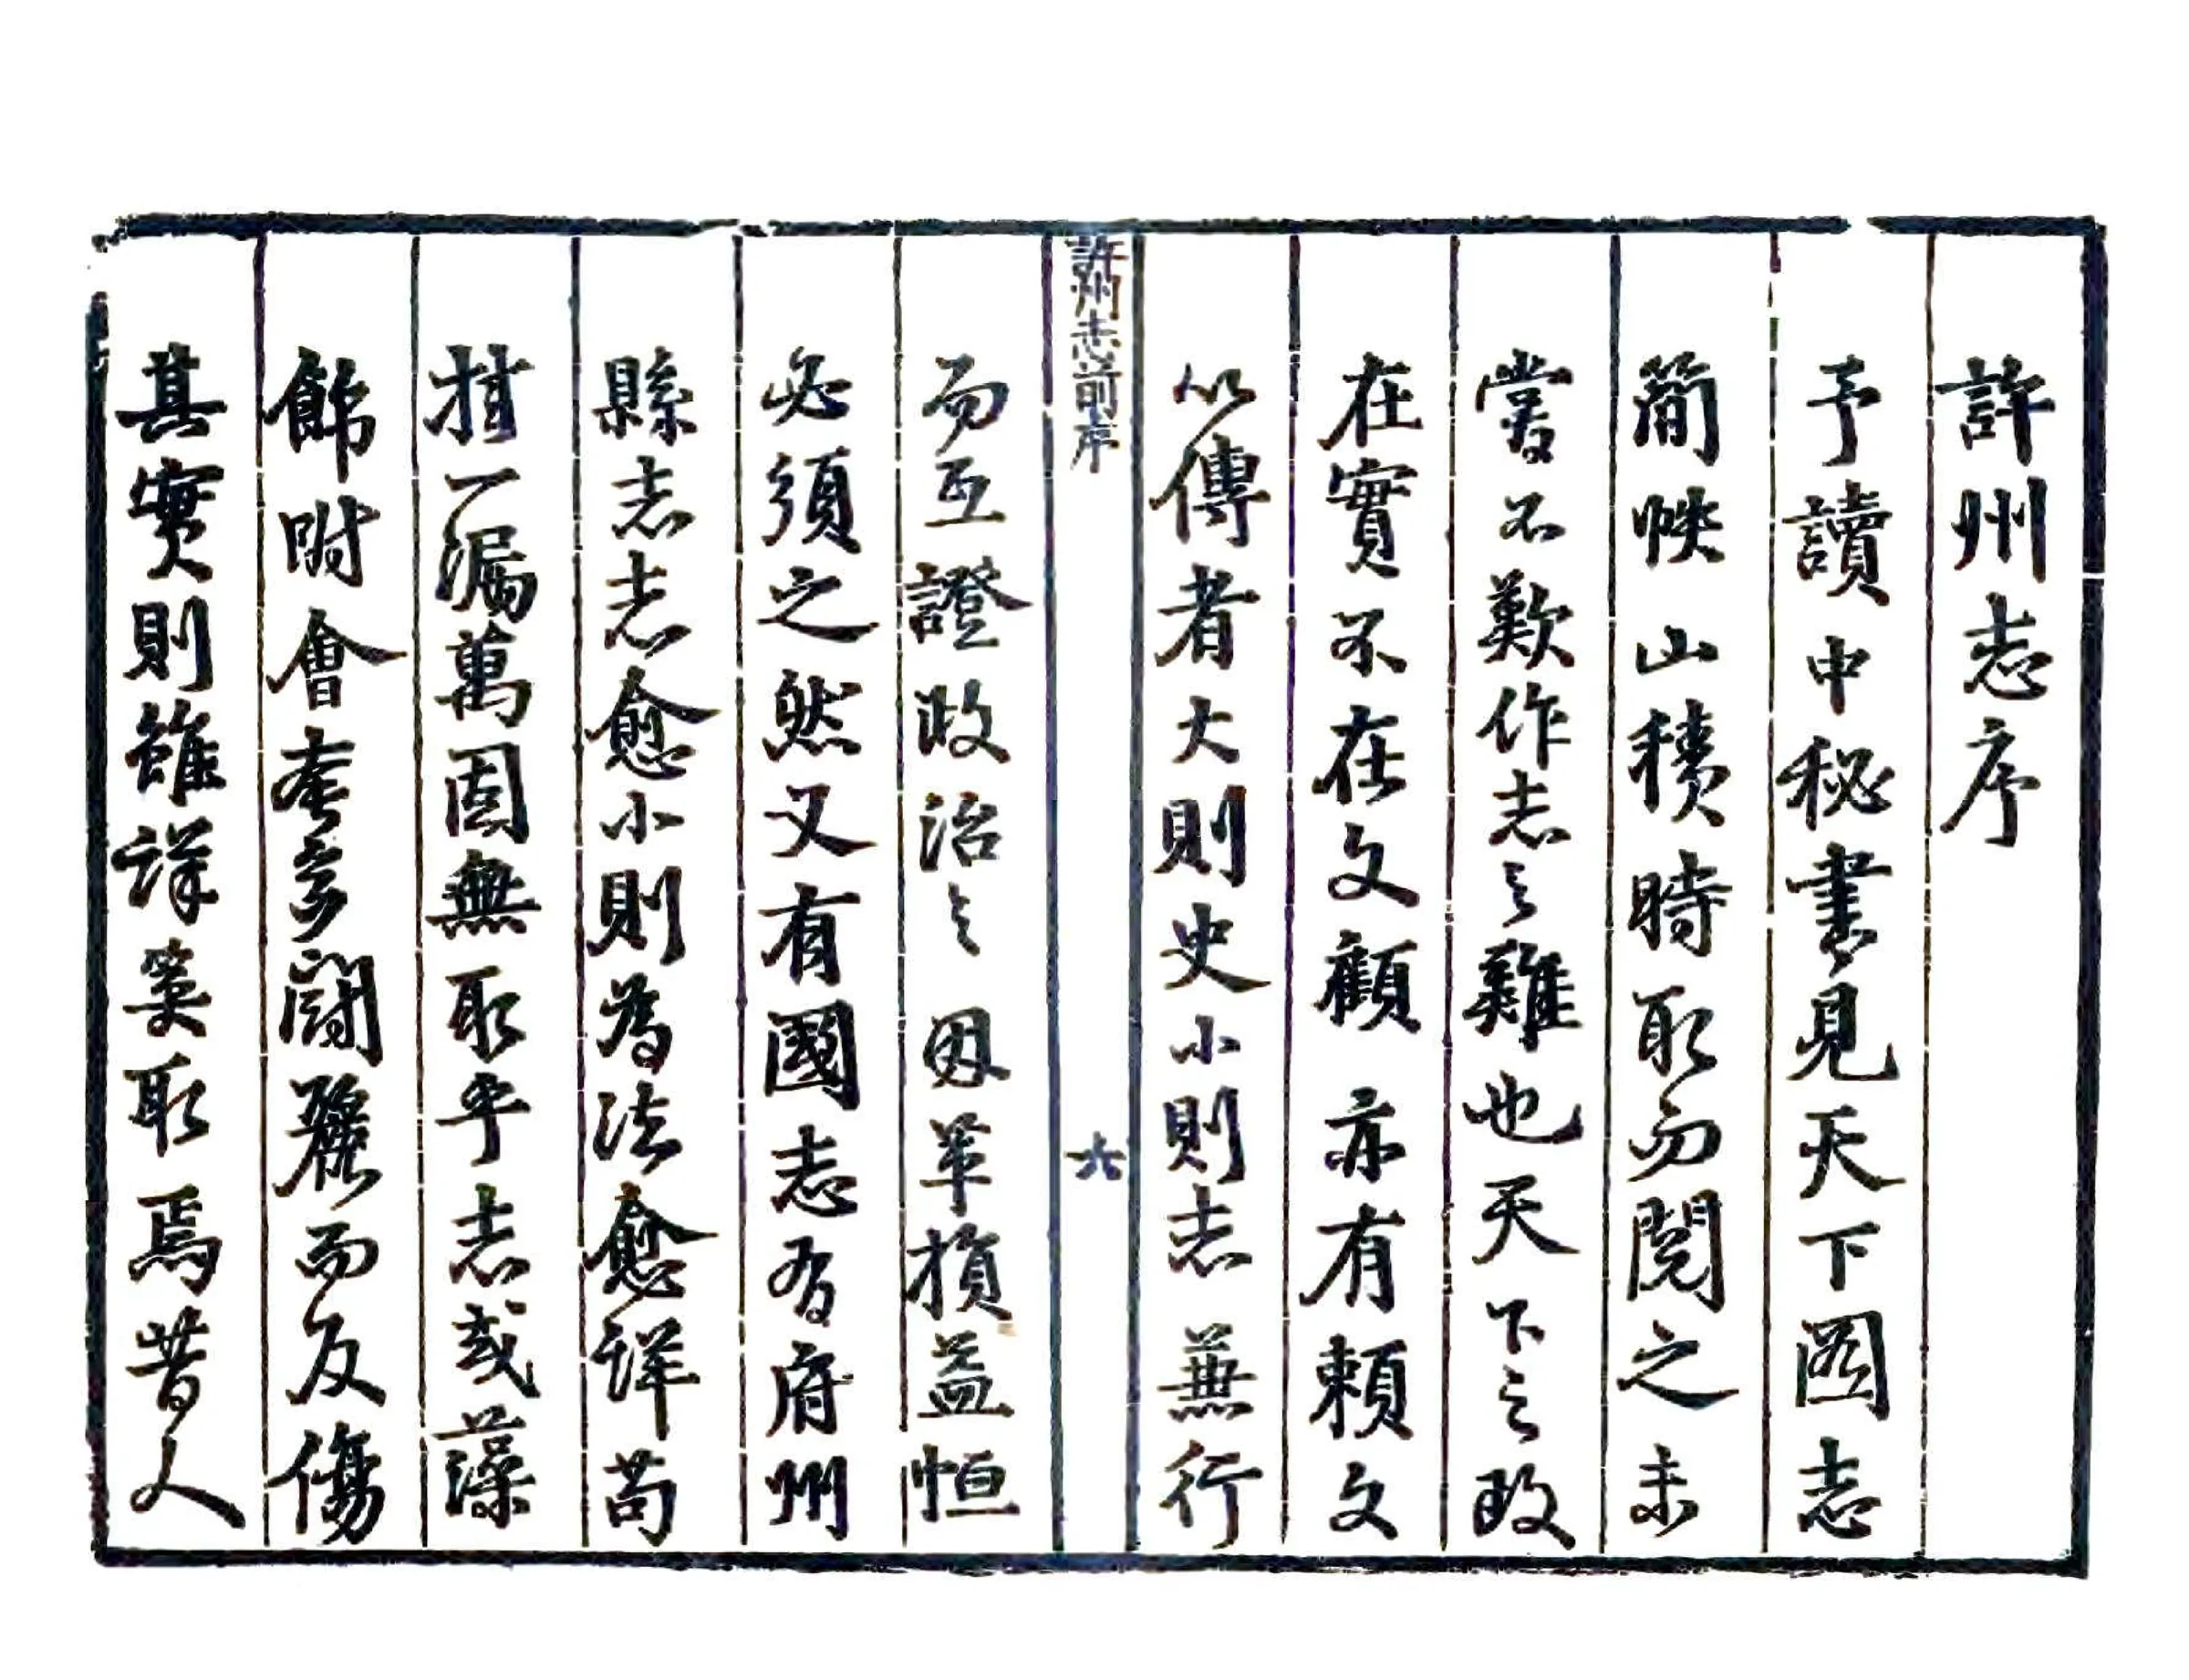 許州志序
予讀中秘書見天下圖志
簡帙山積時取而閱之未
嘗不歎作志之難也天下之政
在實不在文顧亦有賴文
以傳者大則史小則志兼行
許州志前序
六
而互證政治之因革損益恒
必須之然又有國志有府州
縣志志愈小則為法愈詳苟
挂一漏萬固無取乎志或藻
飾附會夸多鬪麗而反傷
其實則雖詳奚取焉昔人